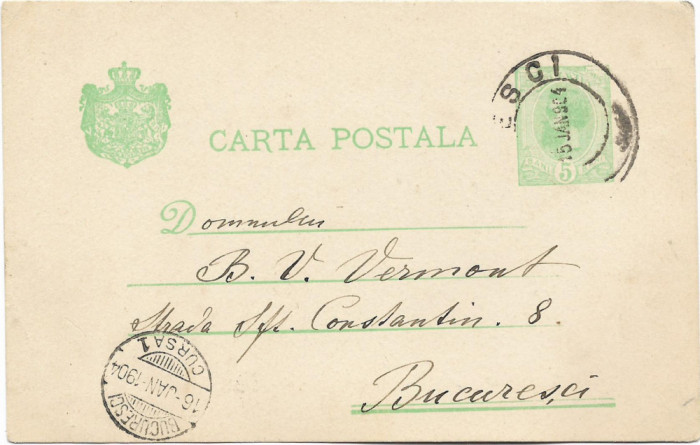 ESCI
15 JAN 904
5
CARTA POSTALA
Domnului
B. V. Vermont
Strada Sft. Constantin. 8.
Bucuresci
CURSA 1
16-JAN-1904
BUCURESCI